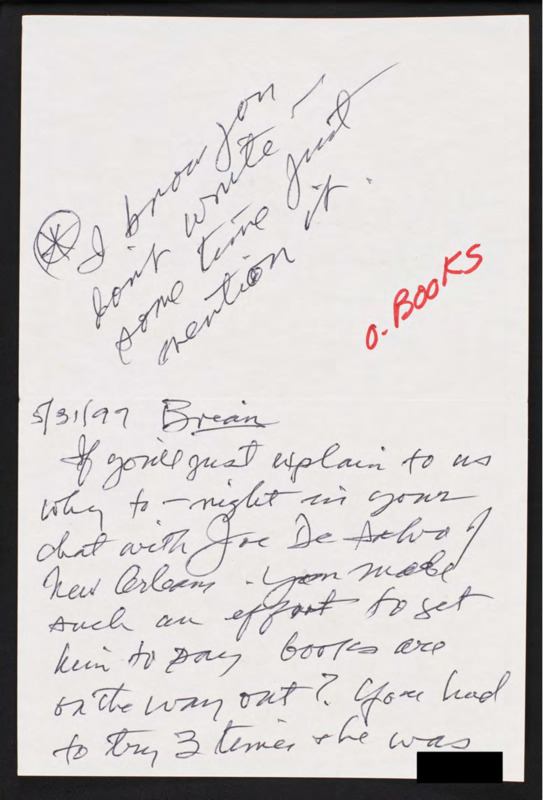 * I know you
don't write -
some time just
mention it.
O. BOOKS
5/31/97 Brian
If you'll just explain to us
why to-night in your
chat with Joe De Salvo of
New Orleans. you made
such an effort to get
him to say books are
on the way out? You had
to try 3 times & he was